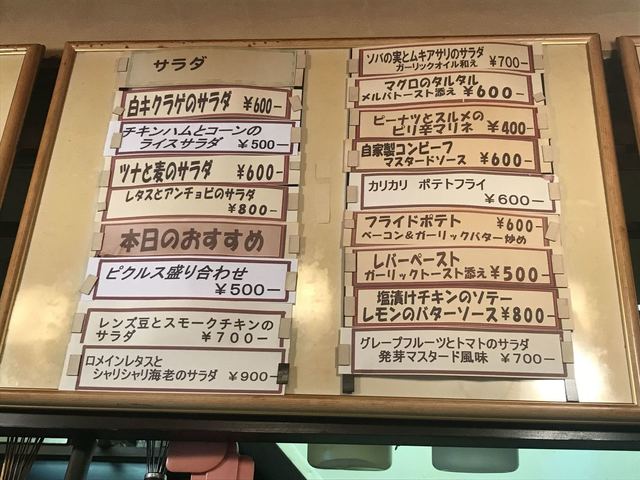 サラダ
白キクラゲのサラダ ¥600-
チキンハムとコーンの
ライスサラダ ¥500-
ツナと麦のサラダ ¥600-
レタスとアンチョビのサラダ
¥800-
本日のおすすめ
ピクルス盛り合わせ
¥500-
レンズ豆とスモークチキンの
サラダ ¥700-
ロメインレタスと
シャリシャリ海老のサラダ ¥900-
ソバの実とムキアサリのサラダ
ガーリックオイル和え ¥700-
マグロのタルタル
メルバトースト添え ¥600-
ピーナツとスルメの
ピリ辛マリネ ¥400-
自家製コンビーフ
マスタードソース ¥600-
カリカリ ポテトフライ
¥600-
フライドポテト ¥600-
ベーコン&ガーリックバター炒め
レバーペースト
ガーリックトースト添え ¥500-
塩漬けチキンのソテー
レモンのバターソース ¥800-
グレープフルーツとトマトのサラダ
発芽マスタード風味 ¥700-